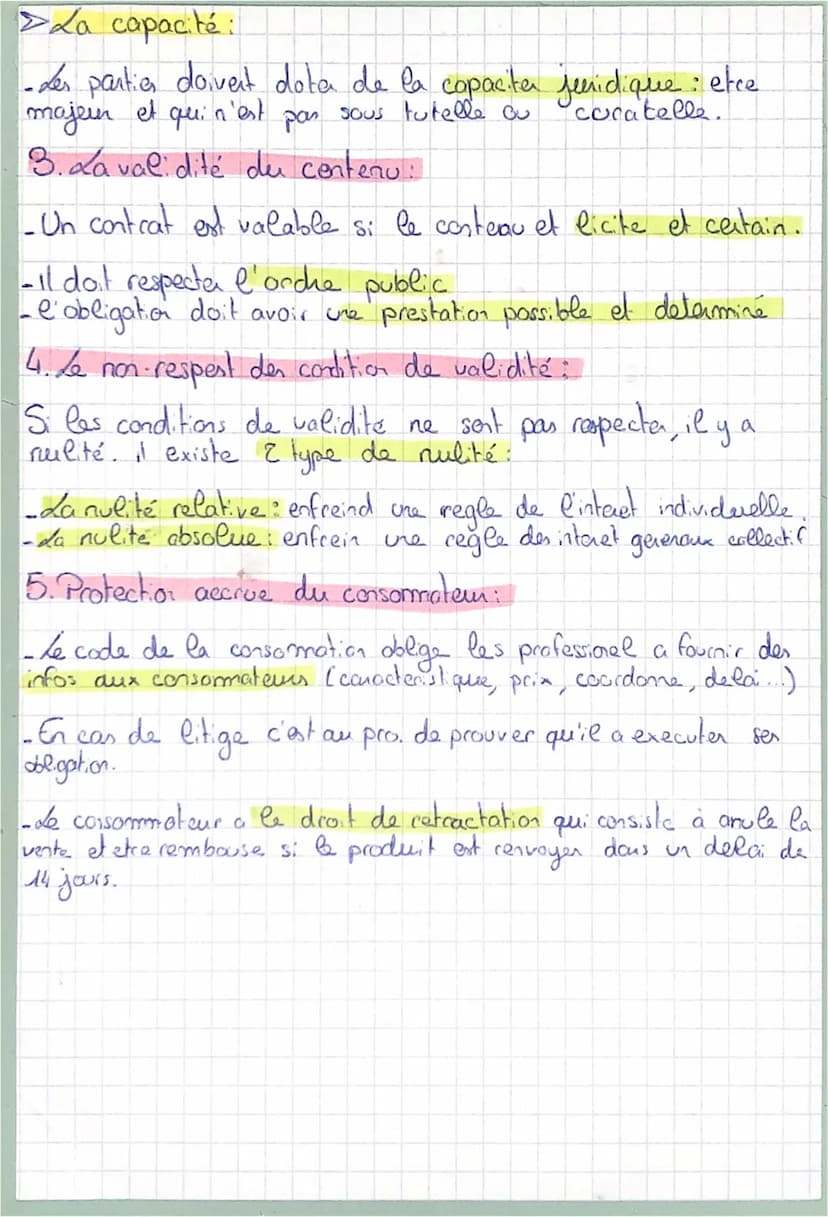 ➢ La capacité :
- Les parties doivent doter de la capaciter juridique : etre
majeur et qui n'est pas sous tutelle ou curatelle.
3. La validité du contenu :
- Un contrat est valable si le contenu et licite et certain.
- il doit respecter l'ordre public
- l'obligation doit avoir une prestation possible et determiné
4. Le non-respest des condition de validité :
Si les conditions de validité ne sont pas respecter, il y a
nulité. il existe 2 type de nulité :
- La nulité relative : enfreind une regle de l'interet individuelle.
- La nulité absolue : enfrein une regle des interet generaux collectif
5. Protection accrue du consommateur :
- Le code de la consommation oblige les professionel a fournir des
infos aux consommateurs (caracteristique, prix, coordonne, delai...)
- En cas de litige c'est au pro. de prouver qu'il a executer ses
obligation.
- Le consommateur a le droit de retractation qui consiste à anule la
vente et etre rembouse si le produit est renvoyer dans un delai de
14 jours.